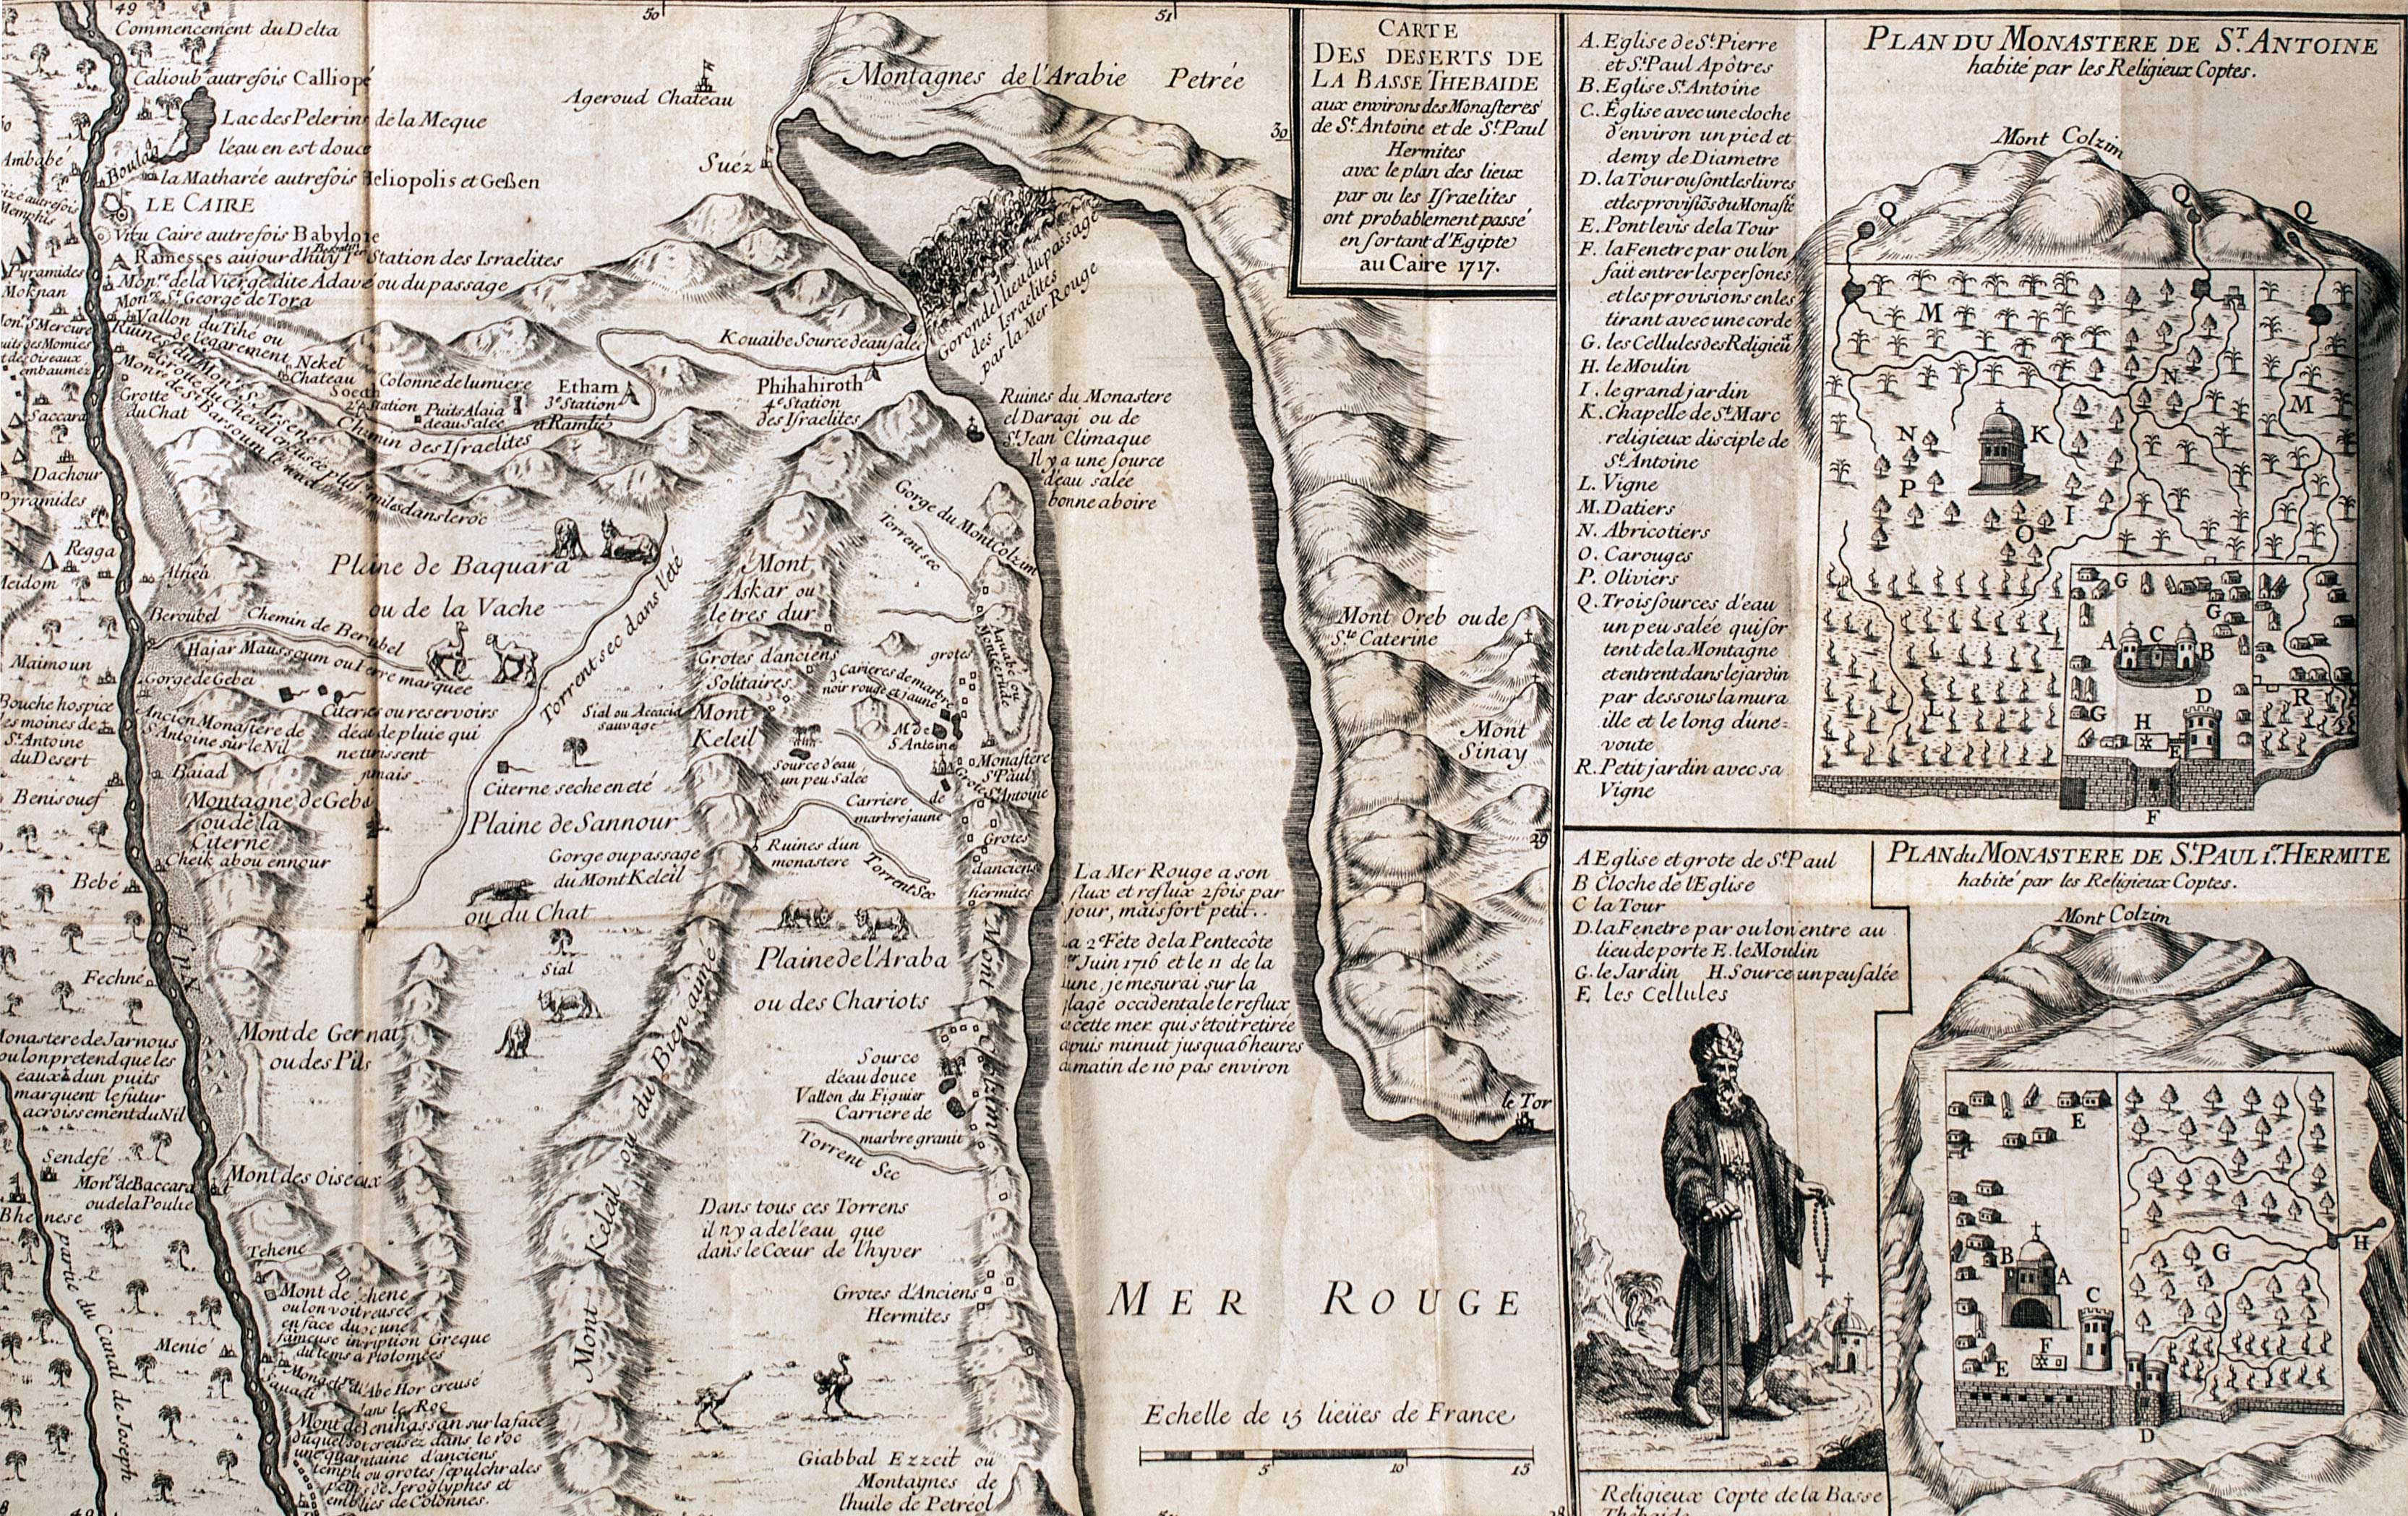 49
50
51
Commencement du Delta
Calioub autrefois Calliopé
Lac des Pelerins de la Meque
l'eau en est douce
Ambabé
Boulaq
la Matharée autrefois Heliopolis et Geßen
LE CAIRE
Vieu Caire autrefois Babylone
Ramesses aujourdhuy
1ere Station des Israelites
Monre de la Vierge dite Adavé ou du passage
Monre St George de Tora
Vallon du Tihé ou
de l'egarement
Pyramides
Moknan
Saccara
Dachour
Pyramides
Regga
Meidom
Grotte
du Chat
Nekel
Chateau
Colonne de lumiere
2e Station
Puits Alaia
d'eau Salée
Etham
3e Station
el Ramlie
Chemin des Israelites
Phihahiroth
4e Station
des Israelites
Kouaibe Source d'eau salée
Ageroud Chateau
Suéz
Montagnes de l'Arabie Petrée
30
Gorondel lieu du passage
des Israelites
par la Mer Rouge
Ruines du Monastere
el Daragi ou de
St Jean Climaque
Il y a une source
d'eau salée
bonne a boire
Gorge du Mont Colzim
Torrent sec
Plaine de Baquara
ou de la Vache
Torrent sec dans l'été
Alfieh
Beroubel
Chemin de Berubel
Hajar Mausoum ou Pierre marquée
Gorge de Gebei
Maimoun
Bouche hospice
des moines de
St Antoine
du Desert
Ancien Monastere de
St Antoine sur le Nil
Citernes ou reservoirs
d'eau de pluie qui
ne tarissent
jamais
Baiad
Benisouef
Citerne seche en eté
Plaine de Sannour
Gorge ou passage
du Mont Keleil
ou du Chat
Sial ou Accacia
sauvage
Cheik abou ennour
Bebé
Fechné
Mont
Askar ou
le tres dur
Grotes d'anciens
Solitaires
Mont
Keleil
3 Carieres de marbre
noir rouge et jaune
grotes
M de
St Antoine
Source d'eau
un peu Salée
Monastere
St Paul
Grote St Antoine
Carriere de
marbre jaune
Ruines d'un
monastere
Torrent Sec
Grotes
d'anciens
hermites
Plaine de l'Araba
ou des Chariots
Sial
Mont Keleil ou du Bien aimé
Mont Colzim
Source
d'eau douce
Vallon du Figuier
Carriere de
marbre granit
Torrent Sec
Dans tous ces Torrens
il n'y a de l'eau que
dans le Cœur de l'hyver
Grotes d'Anciens
Hermites
Giabbal Ezzeit ou
Montagnes de
l'huile de Petréol
Mont de Gernat
ou des Pils
Monastere de Jarnous
ou lon pretend que les
eaux d'un puits
marquent le futur
acroissement du Nil
Sendefé
Monre de Baccara
ou de la Poulie
Bhenese
partie du Canal de Joseph
Mont des Oiseaux
Tehene
Menié
La Mer Rouge a son
flux et reflux 2 fois par
jour, mais fort petit.
la 2e Fête de la Pentecôte
1er Juin 1716 et le 11 de la
lune, je mesurai sur la
plage occidentale le reflux
de cette mer qui s'etoit retirée
depuis minuit jusqua 6 heures
du matin de 110 pas environ
Mont Oreb ou de
Ste Caterine
Mont
Sinay
29
le Tor
MER ROUGE
Echelle de 15 lieües de France
5 10 15
28
CARTE
DES DESERTS DE
LA BASSE THEBAIDE
aux environs des Monasteres
de St Antoine et de St Paul
Hermites
avec le plan des lieux
par ou les Israelites
ont probablement passé
en sortant d'Egipte
au Caire 1717.
A. Eglise de St Pierre
et St Paul Apôtres
B. Eglise St Antoine
C. Église avec une cloche
d'environ un pied et
demy de Diametre
D. la Tour ou sont les livres
et les provisiōs du Monaste
E. Pont levis de la Tour
F. la Fenetre par ou l'on
fait entrer les persones
et les provisions en les
tirant avec une corde
G. les Cellules des Religieū
H. le Moulin
I. le grand jardin
K. Chapelle de St Marc
religieux disciple de
St Antoine
L. Vigne
M. Datiers
N. Abricotiers
O. Carouges
P. Oliviers
Q. Trois sources d'eau
un peu salée qui sor
tent de la Montagne
et entrent dans le jardin
par dessous la mura
ille et le long d'une
voute
R. Petit jardin avec sa
Vigne
PLAN DU MONASTERE DE ST. ANTOINE
habité par les Religieux Coptes.
Mont Colzim
Q Q Q
M
N
M
N
K
P
I
O
G
G
A C B
D
L
G H
E
R
F
A Eglise et grote de St Paul
B Cloche de l'Eglise
C la Tour
D. la Fenetre par ou lon entre au
lieu de porte E. le Moulin
G. le Jardin H. Source un peu salée
F les Cellules
PLAN du MONASTERE DE St PAUL 1er HERMITE
habité par les Religieux Coptes.
Mont Colzim
E
G
H
B
A
C
F
E
D
Religieux Copte de la Basse
Thebaide